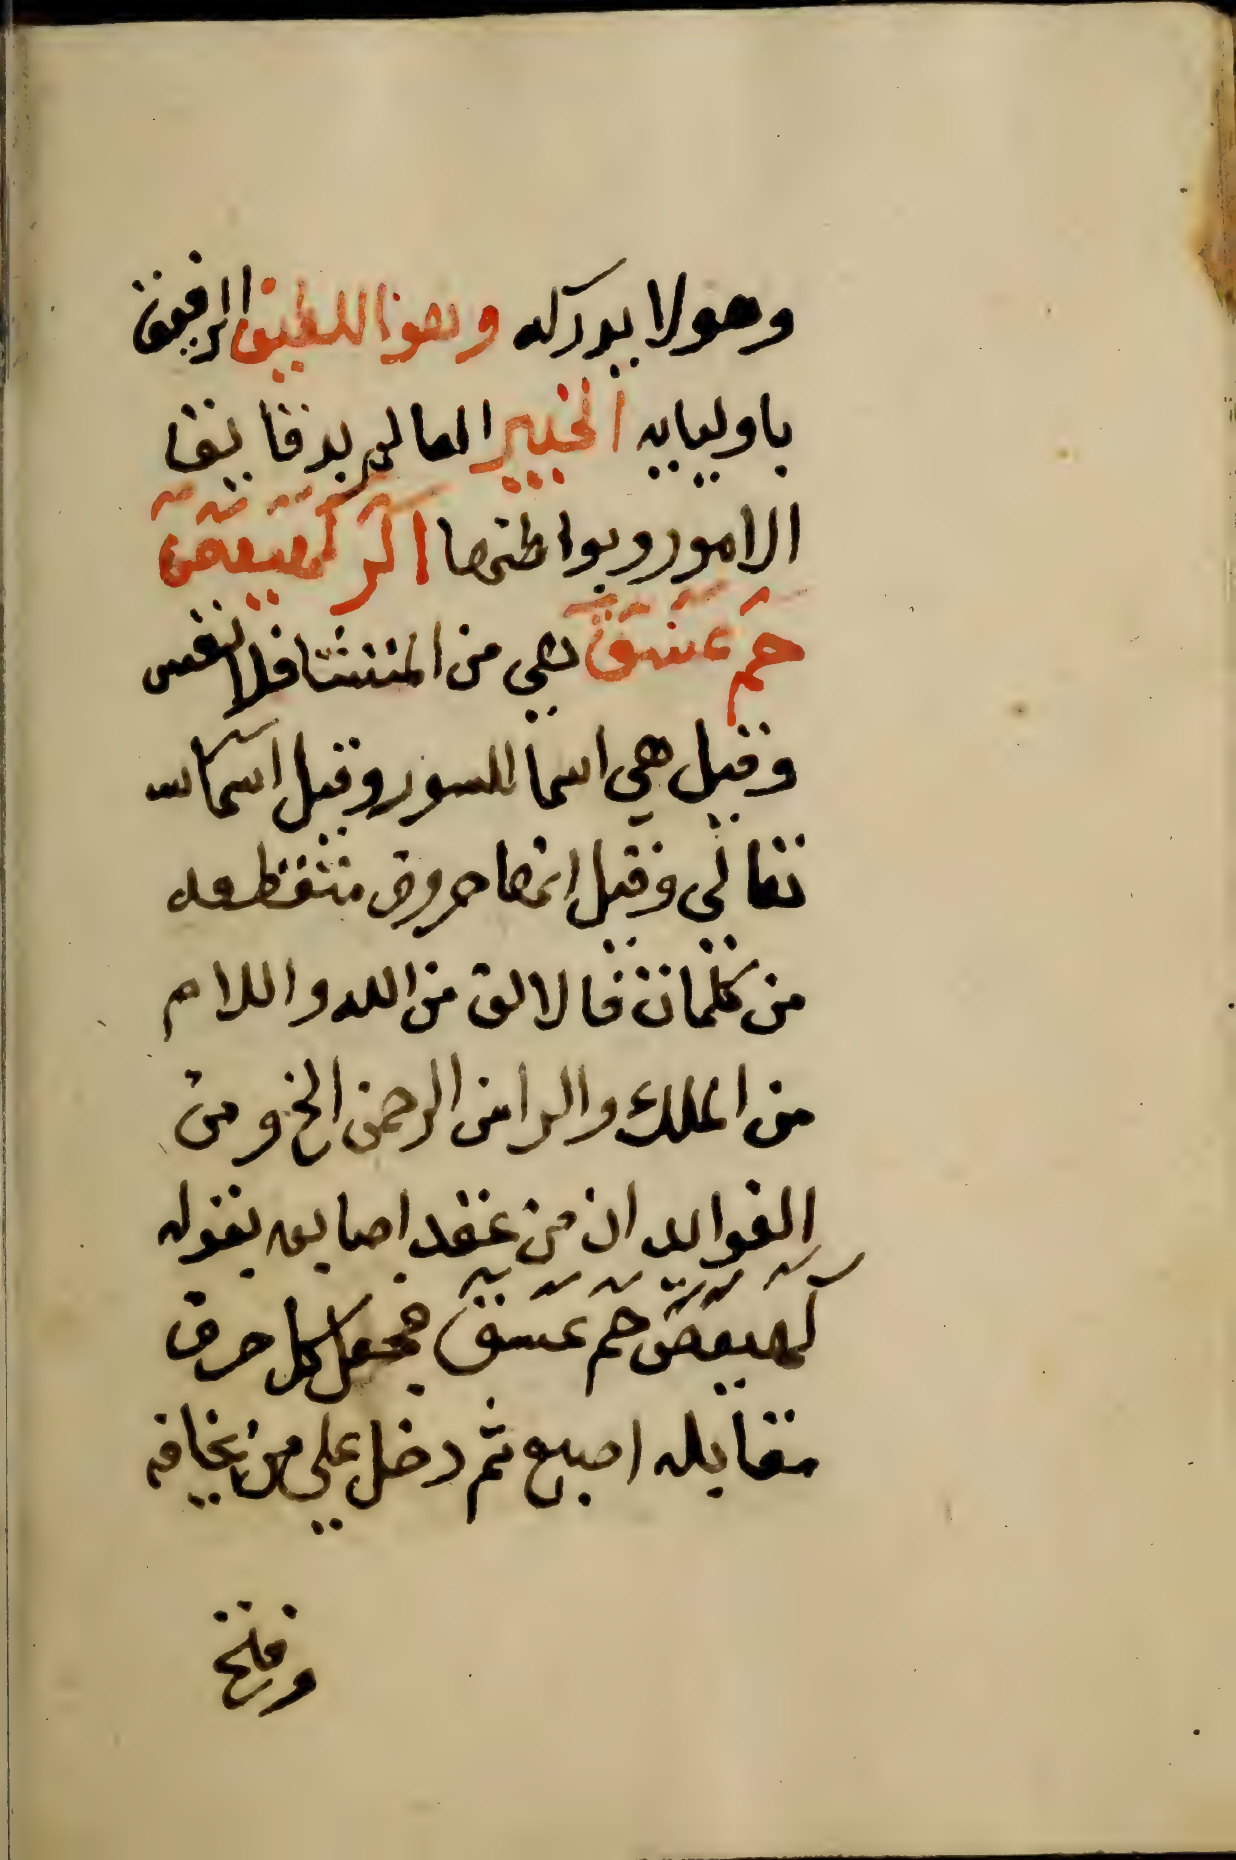 وهو لا يدركه وهو اللطيف الرفيق
باوليايه الخبير العالم بدقايق
الامور وبواطنها الر كهيعص
حم عسق هي من المتشابه فلا تفسر
وقيل هي اسما للسور وقيل اسما لله
تعالي وقيل انها حروف متقطعه
من كلمات فالالف من الله واللام
من الملك والرا من الرحمن الخ ومن
الفوايد ان من عقد اصابعه بقوله
كهيعص حم عسق فجعل كل حرف
مقابله اصبع ثم دخل علي من يخافه
وفتح